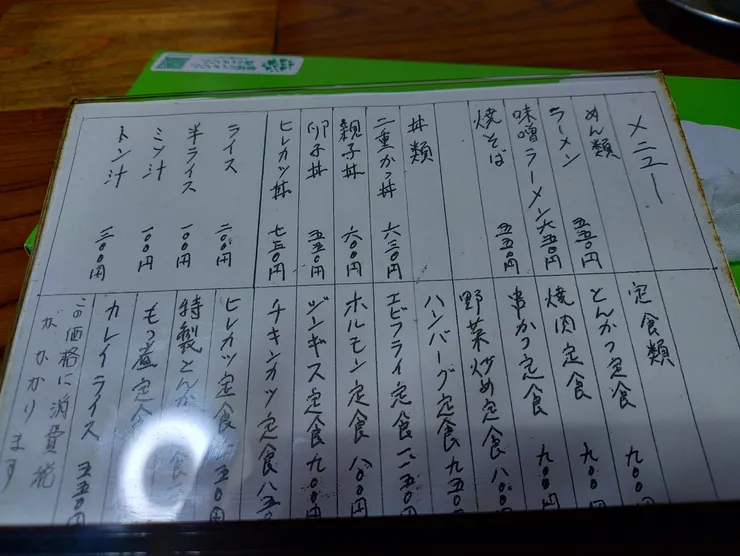 メニュー
めん類
ラーメン 五五〇円
味噌ラーメン 六五〇円
焼そば 五五〇円
丼類
二重かつ丼 六三〇円
親子丼 六〇〇円
卵子丼 五五〇円
ヒレカツ丼 七五〇円
ライス 二〇〇円
半ライス 一〇〇円
ミソ汁 一〇〇円
トン汁 三〇〇円
定食類
とんかつ定食 九〇〇円
焼肉定食 九〇〇円
串かつ定食 九〇〇円
野菜炒め定食 八〇〇円
ハンバーグ定食 九五〇円
エビフライ定食 一一五〇円
ホルモン定食 八〇〇円
ジンギス定食 九〇〇円
チキンカツ定食 八五〇
ヒレカツ定食 五〇円
特製とんか 食
もつ煮定食
カレイライス 五五〇円
この価格に消費税
がかかります